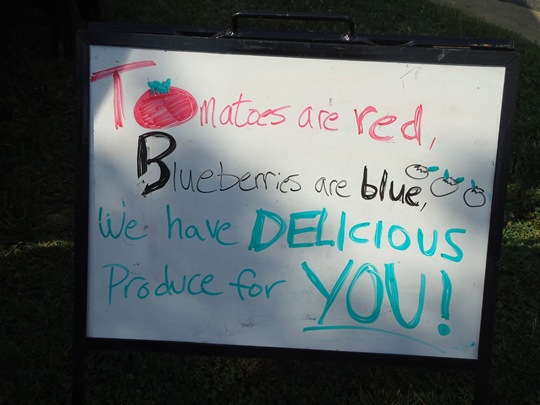 Tomatoes are red,
Blueberries are blue,
We have DELICIOUS
Produce for YOU!